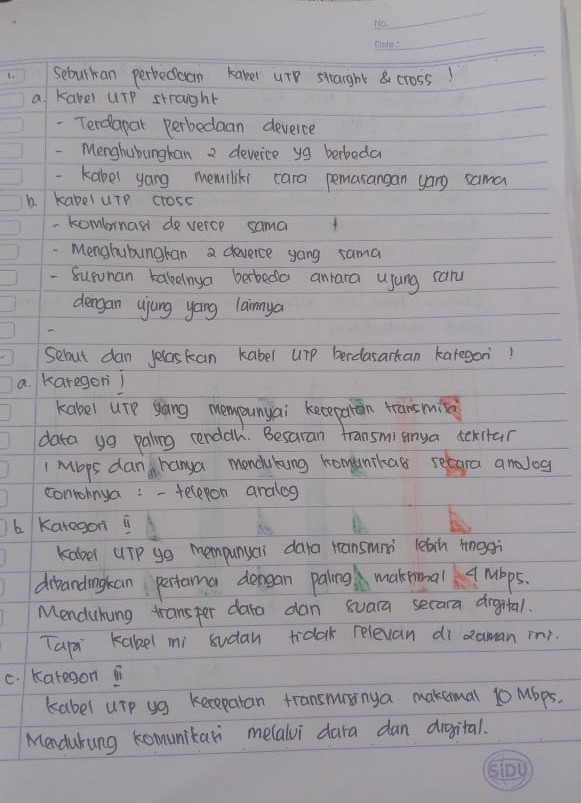 No.
Date:
1. Sebutkan perbedaan kabel UTP straight & cross !
a. Kabel UTP straight
- Terdapat perbedaan deverce
- Menghubungkan 2 deverce yg berbeda
- kabel yang memiliki cara pemasangan yang sama
b. kabel UTP cross
- kombinasi deverce sama
- Menghubungkan 2 deverce yang sama
- Susunan kabelnya berbeda antara ujung satu
dengan ujung yang lainnya
-
Sebut dan jelaskan kabel UTP berdasarkan kategori !
a. Kategori i
kabel UTP yang mempunyai kecepatan transmisi
data yg paling rendah. Besaran transmisinya sekitar
1 Mbps dan hanya mendukung komunikasi secara analog
contohnya : - telepon analog
b. Kategori ii
Kabel UTP yg mempunyai data transmisi lebih tinggi
dibandingkan pertama dengan paling maksimal 4 Mbps.
Mendukung transfer data dan suara secara digital.
Tapi kabel ini sudah tidak relevan di zaman ini.
c. Kategori iii
Kabel UTP yg kecepatan transmisinya maksimal 10 Mbps.
Mendukung komunikasi melalui data dan digital.
SiDU